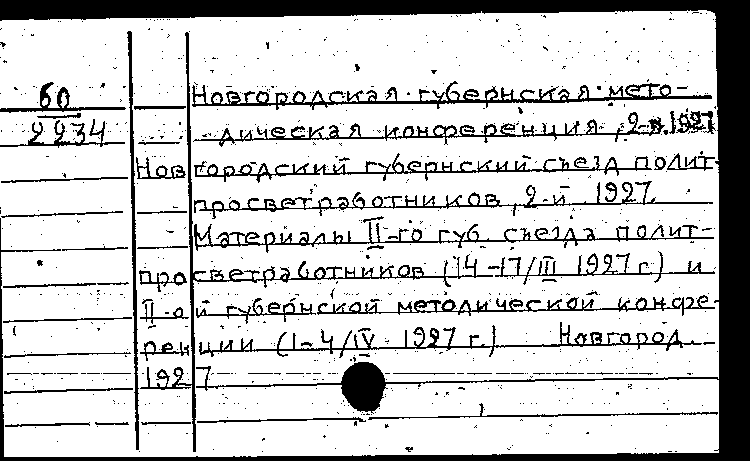 60
2234
Новгородская губернская мето-
дическая конференция, 2-я. 1927
Новгородский губернский съезд полит-
просветработников, 2-й 1927.
Материалы II-го губ. съезда полит-
просветработников (14-17/III 1927 г.) и
II-ой губернской методической конфе-
ренции (1-4/IV 1927 г.) Новгород.
1927